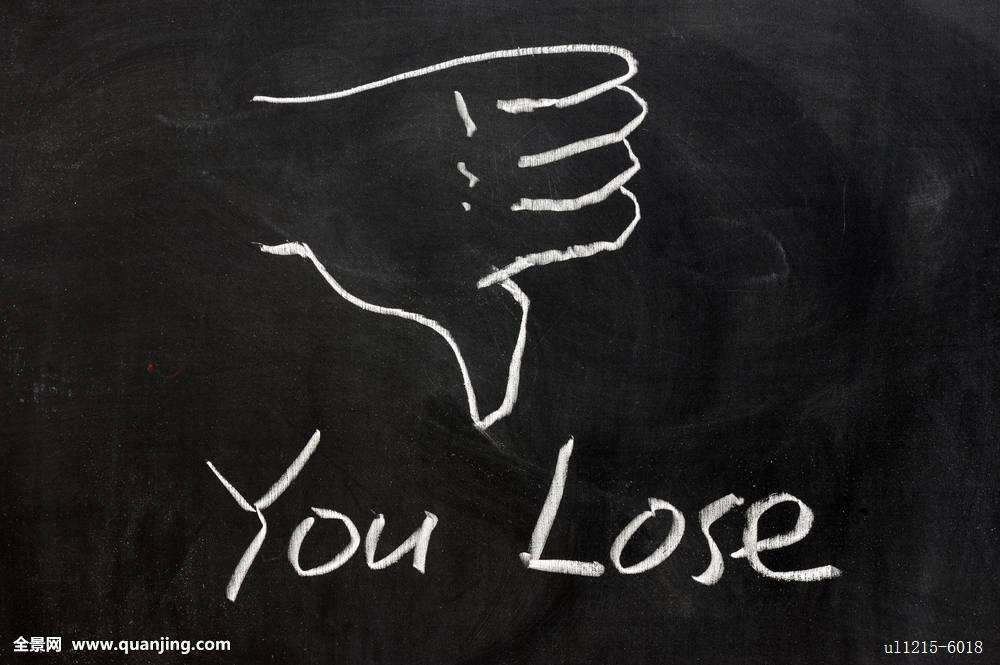 You Lose
全景网 www.quanjing.com
ul1215-6018